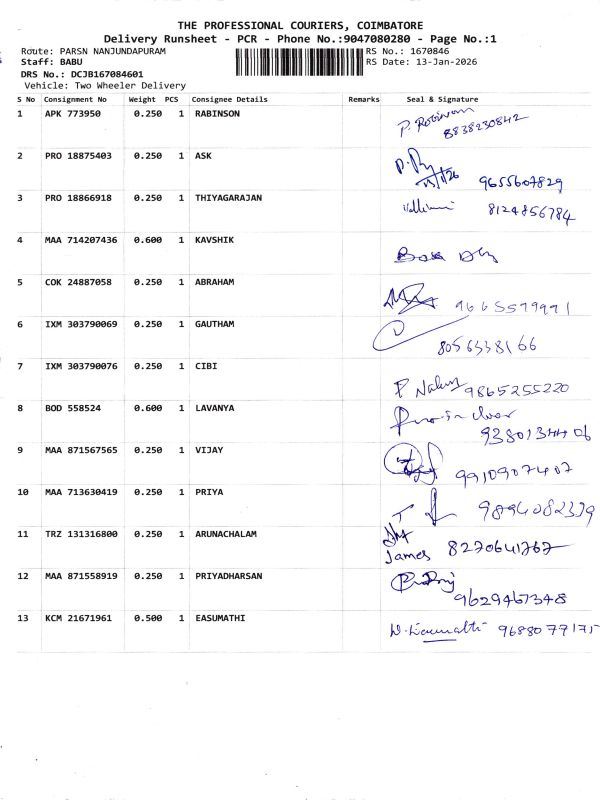 THE PROFESSIONAL COURIERS, COIMBATORE
Delivery Runsheet - PCR - Phone No.:9047080280 - Page No.:1
Route: PARSN NANJUNDAPURAM RS No.: 1670846
Staff: BABU RS Date: 13-Jan-2026
DRS No.: DCJB167084601
Vehicle: Two Wheeler Delivery
S No Consignment No Weight PCS Consignee Details Remarks Seal & Signature
1 APK 773950 0.250 1 RABINSON P. Robinson
8838230842
2 PRO 18875403 0.250 1 ASK
13/1/26 9655607829
3 PRO 18866918 0.250 1 THIYAGARAJAN 8124856784
4 MAA 714207436 0.600 1 KAVSHIK
5 COK 24887058 0.250 1 ABRAHAM 9665579991
6 IXM 303790069 0.250 1 GAUTHAM
8056338166
7 IXM 303790076 0.250 1 CIBI 9865255220
8 BOD 558524 0.600 1 LAVANYA
9380134406
9 MAA 871567565 0.250 1 VIJAY
9910907407
10 MAA 713630419 0.250 1 PRIYA 9894082379
11 TRZ 131316800 0.250 1 ARUNACHALAM
James 8270641767
12 MAA 871558919 0.250 1 PRIYADHARSAN
9629467348
13 KCM 21671961 0.500 1 EASUMATHI 9688077175